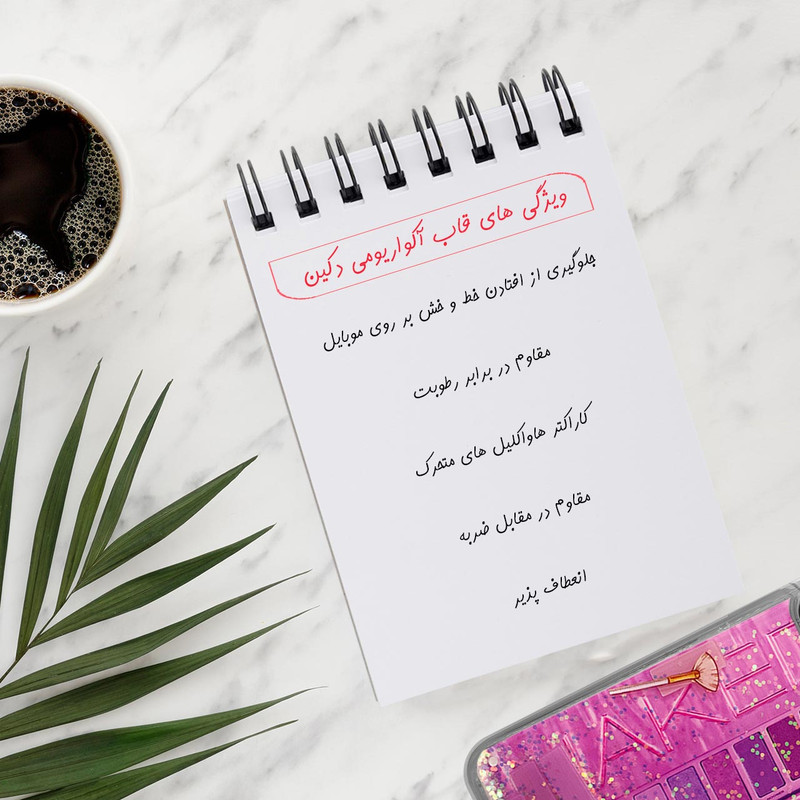 ویژگی های قاب آکواریومی دکین
جلوگیری از افتادن خط و خش بر روی موبایل
مقاوم در برابر رطوبت
کاراکتر هاواکلیل های متحرک
مقاوم در مقابل ضربه
انعطاف پذیر